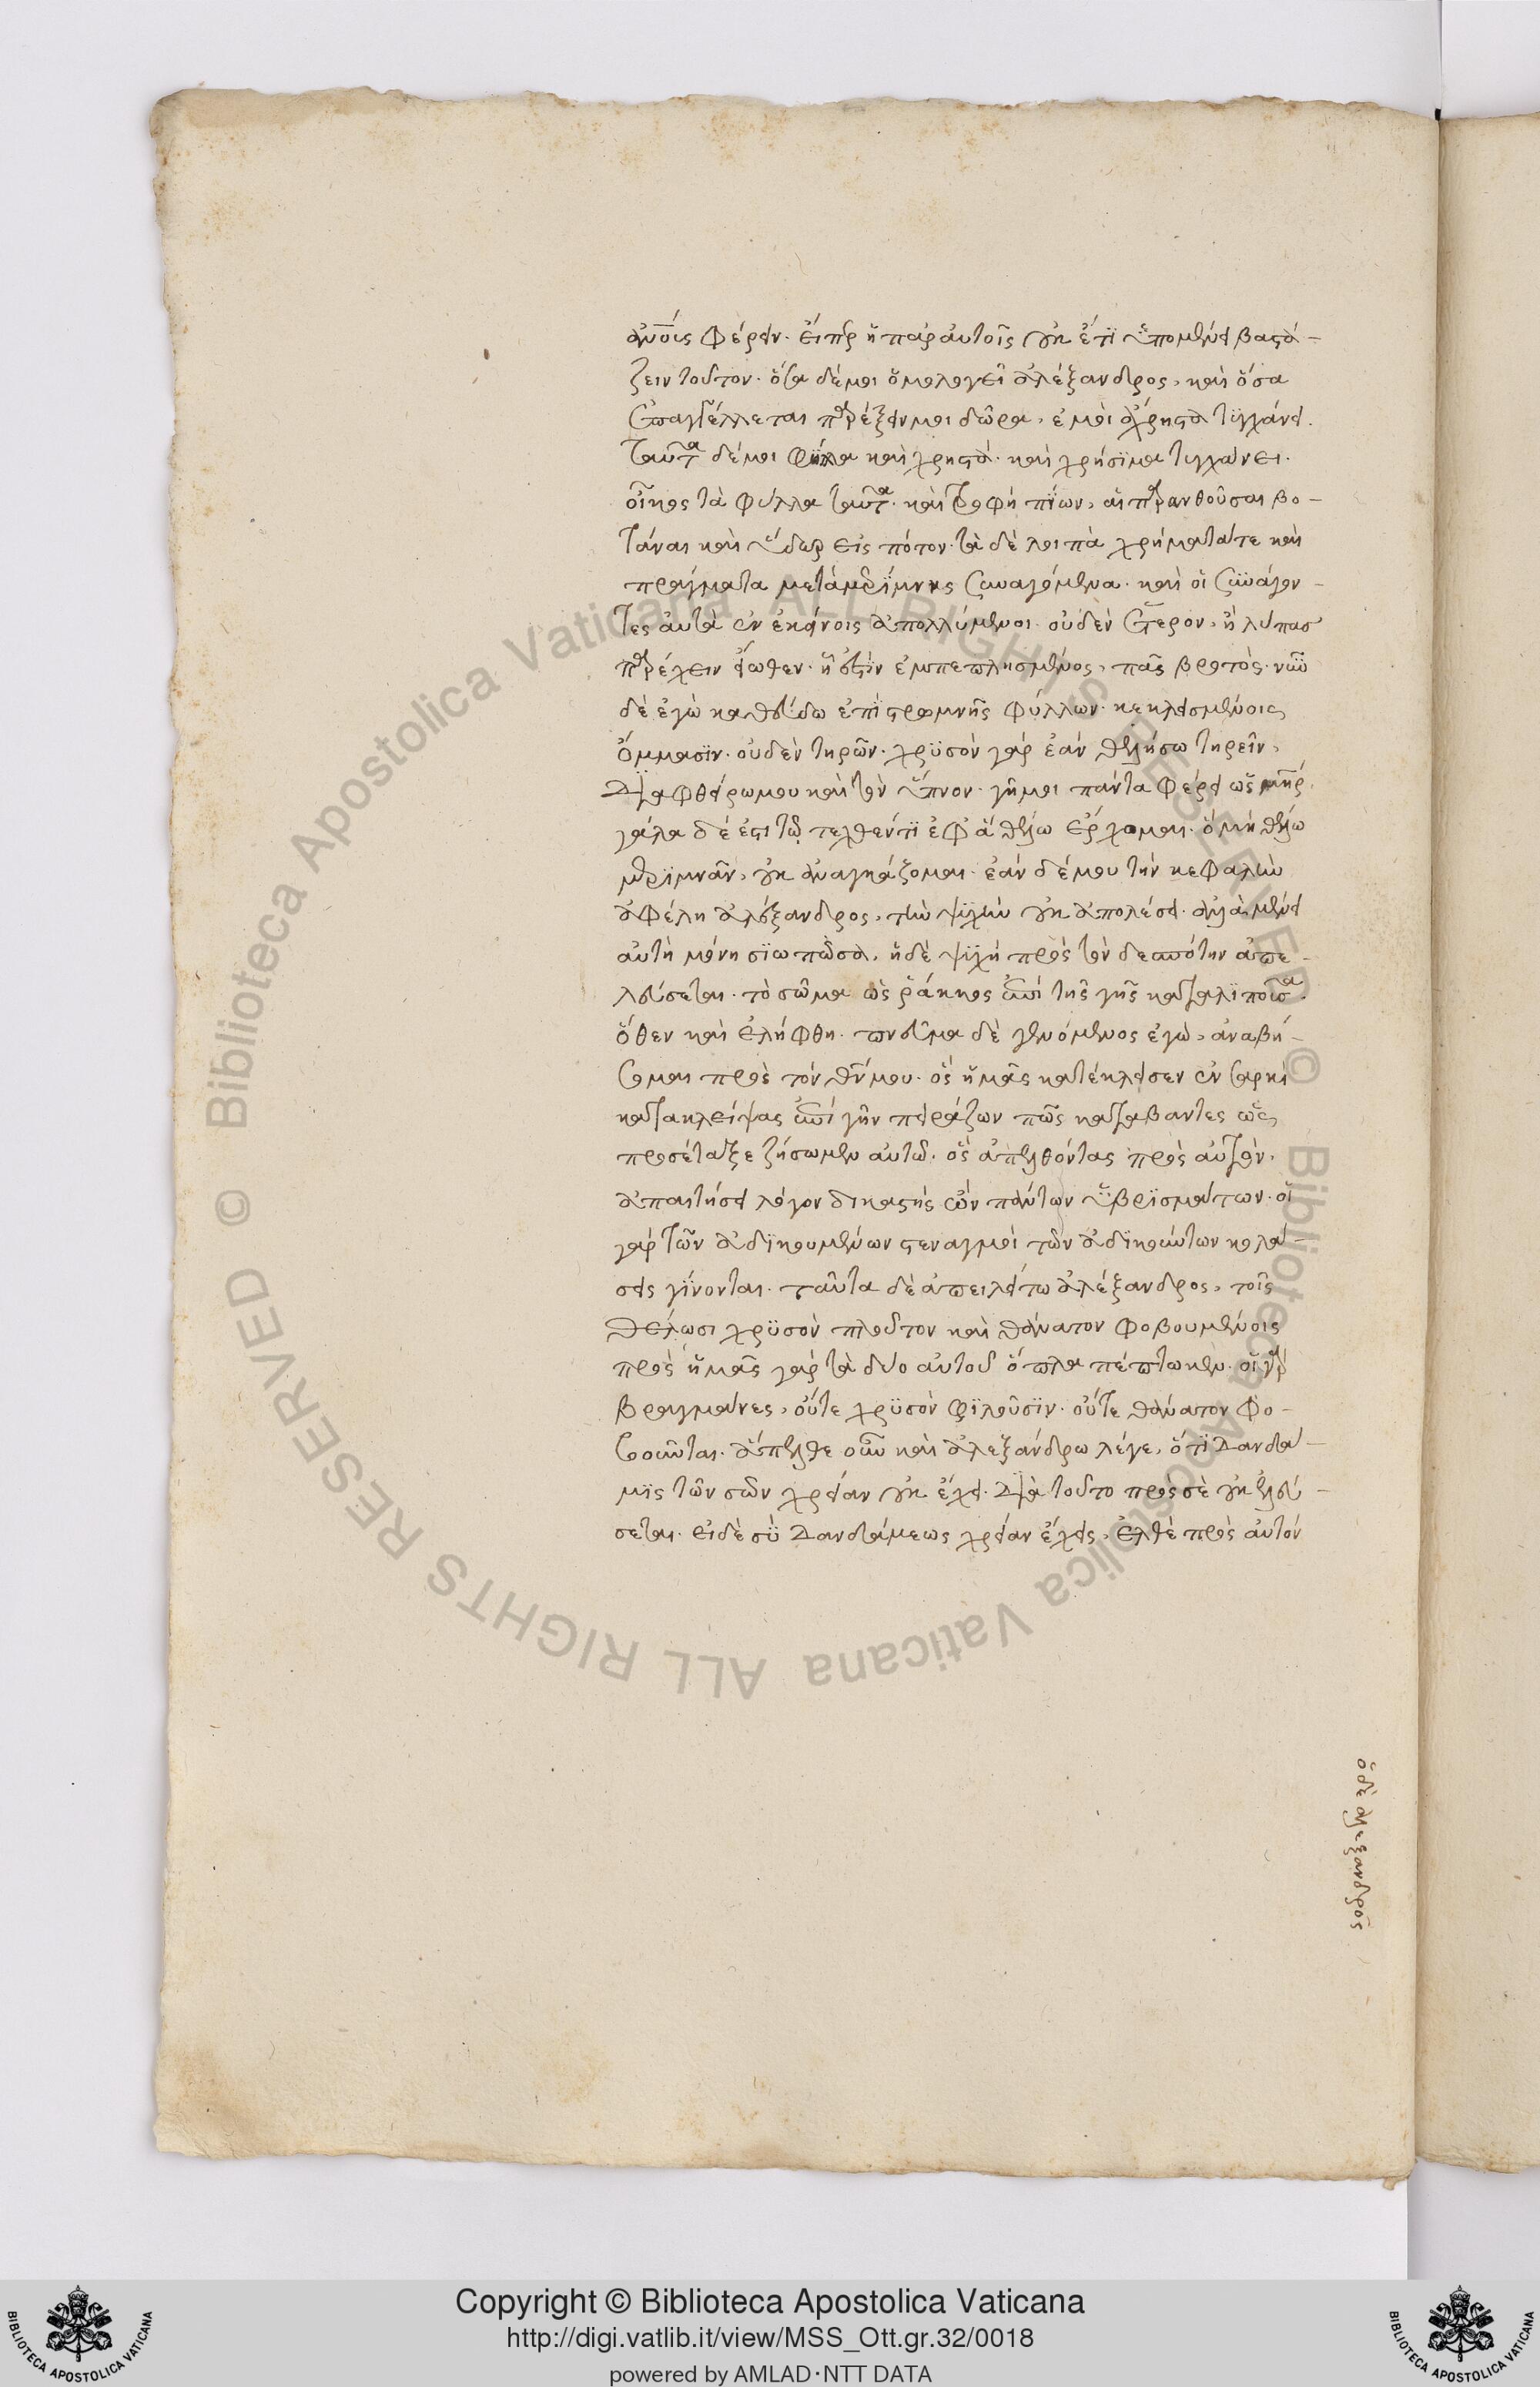 ἀνοις φέρειν. εἴπερ ἡ παρ αὐτοῖς γῆ ἔτι ὑπομένει βαστά-
ζειν τοῦτον. ὅσα δέ μοι ὁμολογεῖ ἀλέξανδρος, καὶ ὅσα
ἐπαγγέλλεται παρέξειν μοι δῶρα, ἐμοὶ ἄχρηστα τυγχάνει.
ταῦτα δέ μοι φίλα καὶ χρηστά. καὶ χρήσιμα τυγχάνει.
οἶκος τὰ φύλλα ταῦτα. καὶ τροφὴ πίων, αἱ παρανθοῦσαι βο-
τάναι καὶ ὕδωρ εἰς πότον. τὰ δὲ λοιπὰ χρήματά τε καὶ
πράγματα μετὰ μερίμνης συναγόμενα. καὶ οἱ συνάγον-
τες αὐτὰ ἐν ἐκείνοις ἀπολλύμενοι. οὐδὲν ἕτερον, ἢ λύπας
παρέχειν εἴωθεν. ἧς ἐστὶν ἐμπεπλησμένος, πᾶς βροτός. νῦν
δὲ ἐγὼ καθεύδω ἐπὶ στρωμνῆς φύλλων. κεκλεισμένοις
ὄμμασιν. οὐδὲν τηρῶν. χρυσὸν γὰρ ἐὰν θελήσω τηρεῖν,
διαφθείρω μου καὶ τὸν ὕπνον. γῆ μοι πάντα φέρει ὡς μήτηρ
γάλα δέ ἐστι τῷ τεχθέντι ἐφ ἃ θέλω ἔρχομαι. ὃ μὴ θέλω
μεριμνᾶν, οὐκ ἀναγκάζομαι. ἐὰν δέ μου τὴν κεφαλὴν
ἀφέλῃ ἀλέξανδρος, τὴν ψυχὴν οὐκ ἀπολέσει. ἀλλὰ μένει
αὐτὴ μόνη σιωπῶσα. ἡ δὲ ψυχὴ πρὸς τὸν δεσπότην ἀπε-
λεύσεται. τὸ σῶμα ὡς ῥάκκος ἐπὶ τῆς γῆς καταλιποῦσα.
ὅθεν καὶ ἐλήφθη. πνεῦμα δὲ γενόμενος ἐγώ, ἀναβή-
σομαι πρὸς τόν θν μου. ὃς ἡμᾶς κατέκλεισεν ἐν σαρκὶ
κατακλείψας ἐπὶ γῆν πειράζων πῶς καταβάντες ὡς
προσέταξε ζήσωμεν αὐτῷ. ὃς ἀπελθόντας πρὸς αὐτὸν,
ἀπαιτήσει λόγον δικαστὴς ὢν πάντων ὑβρισμάτων. οἱ
γὰρ τῶν ἀδικουμένων στεναγμοὶ τῶν ἀδικούντων κολά-
σεις γίνονται. ταῦτα δὲ ἀπειλείτω ἀλέξανδρος, τοῖς
θέλωσι χρυσὸν πλοῦτον καὶ θάνατον φοβουμένοις
πρὸς ἡμᾶς γὰρ τὰ δύο αὐτοῦ ὅπλα πέπτωκεν. οἱ γὰρ
βραγμάνες, οὔτε χρυσὸν φιλοῦσιν. οὔτε θάνατον φο-
βοῦνται. ἄπελθε οὖν καὶ ἀλεξάνδρω λέγε, ὅτι Δανδα-
μις τῶν σῶν χρείαν οὐκ ἔχει. Διὰ τοῦτο πρὸς σὲ οὐκ ἐλεύ-
σεται. εἰ δὲ σὺ Δανδάμεως χρείαν ἔχεις, ἐλθὲ πρὸς αὐτόν
ὁ δὲ ἀλεξανδρος
Copyright © Biblioteca Apostolica Vaticana
http://digi.vatlib.it/view/MSS_Ott.gr.32/0018
powered by AMLAD·NTT DATA
BIBLIOTECA APOSTOLICA VATICANA
BIBLIOTECA APOSTOLICA VATICANA
© Biblioteca Apostolica Vaticana ALL RIGHTS RESERVED
© Biblioteca Apostolica Vaticana ALL RIGHTS RESERVED